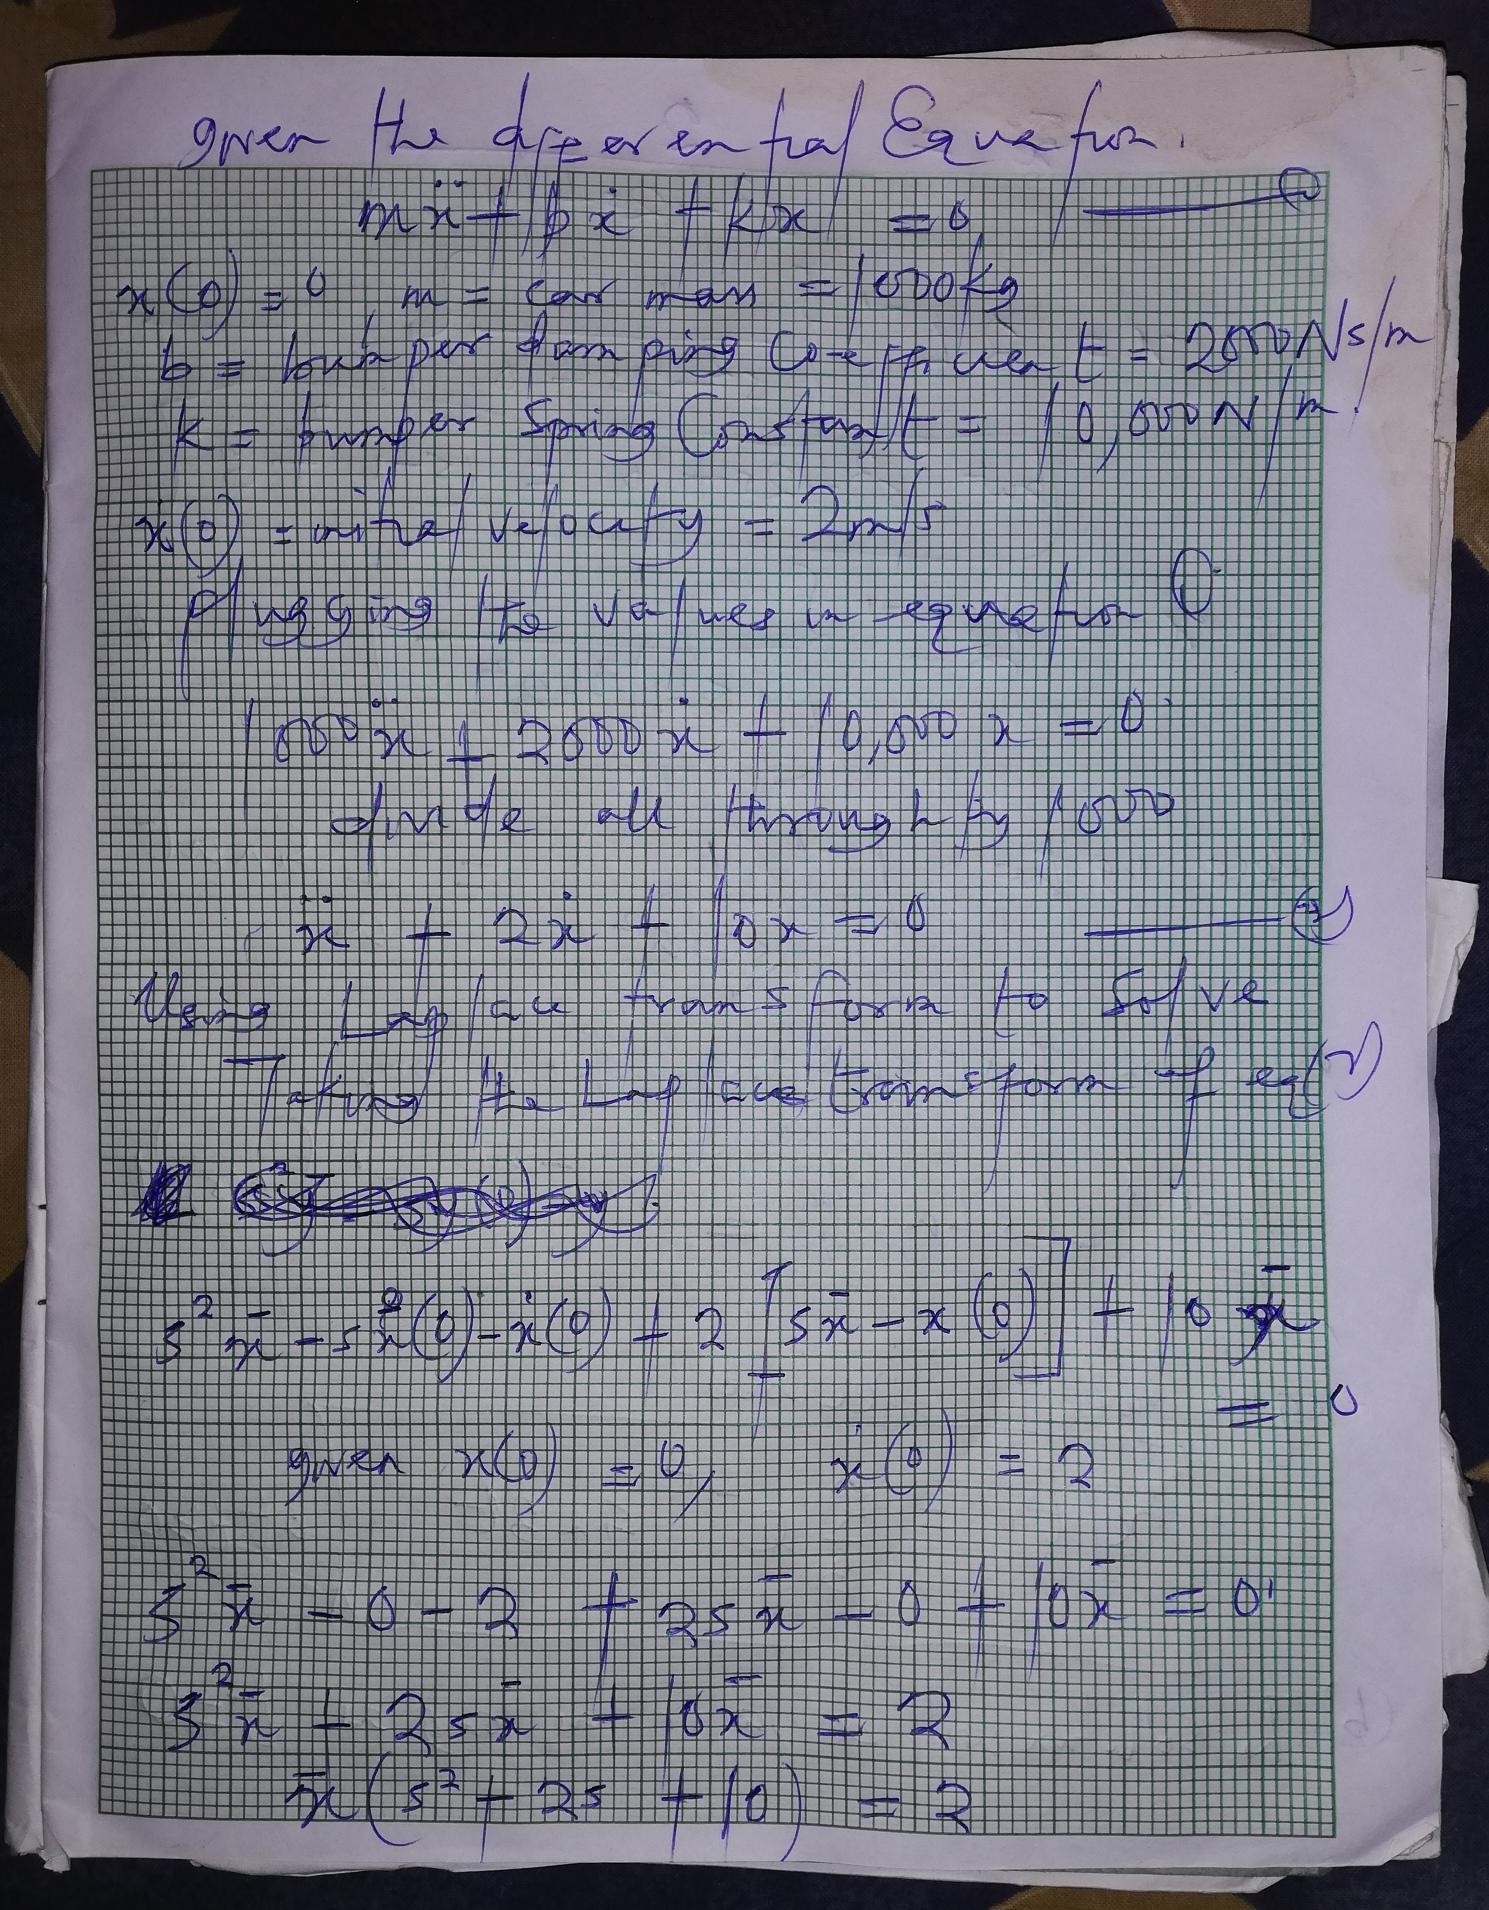 given the differential Equation.
mẍ + bẋ + kx = 0 ——— ①
x(0) = 0 m = car mass = 1000kg
b = bumper damping Co-efficient = 2000Ns/m
k = bumper Spring Constant = 10,000N/m.
ẋ(0) = initial velocity = 2m/s
Plugging the values in equation ①
1000ẍ + 2000ẋ + 10,000x = 0
divide all through by 1000
ẍ + 2ẋ + 10x = 0 ——— ②
Using Laplace transform to solve
Taking the Laplace transform of eq(2)
s²x̄ - sx(0) - ẋ(0) + 2[sx̄ - x(0)] + 10x̄
= 0
given x(0) = 0, ẋ(0) = 2
s²x̄ - 0 - 2 + 2sx̄ - 0 + 10x̄ = 0
s²x̄ + 2sx̄ + 10x̄ = 2
x̄(s² + 2s + 10) = 2